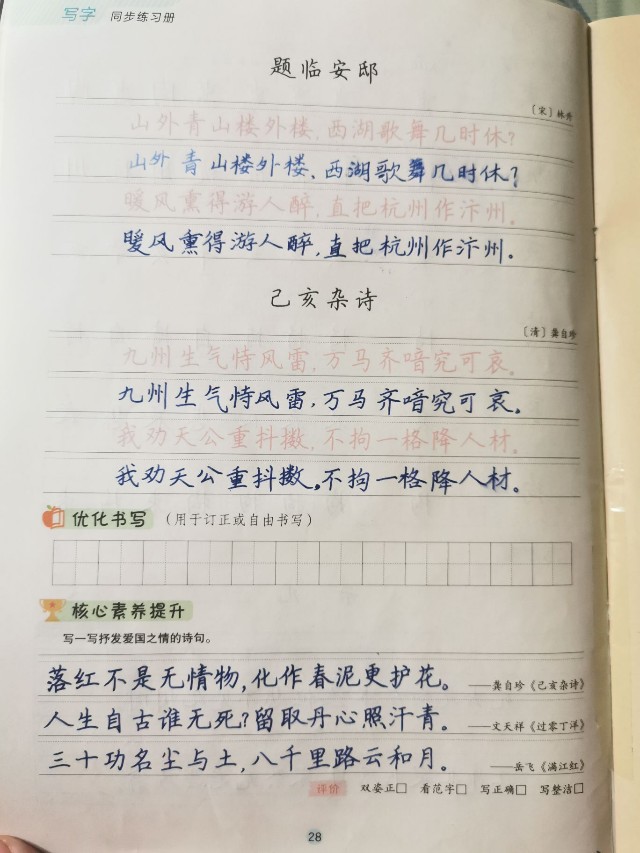 写字 同步练习册
题临安邸
〔宋〕林升
山外青山楼外楼,西湖歌舞几时休?
山外青山楼外楼,西湖歌舞几时休?
暖风熏得游人醉,直把杭州作汴州。
暖风熏得游人醉,直把杭州作汴州。
己亥杂诗
〔清〕龚自珍
九州生气恃风雷,万马齐喑究可哀。
九州生气恃风雷,万马齐喑究可哀。
我劝天公重抖擞,不拘一格降人材。
我劝天公重抖擞,不拘一格降人材。
优化书写 (用于订正或自由书写)
核心素养提升
写一写抒发爱国之情的诗句。
落红不是无情物,化作春泥更护花。 ——龚自珍《己亥杂诗》
人生自古谁无死?留取丹心照汗青。 ——文天祥《过零丁洋》
三十功名尘与土,八千里路云和月。 ——岳飞《满江红》
评价 双姿正□ 看范字□ 写正确□ 写整洁□
28